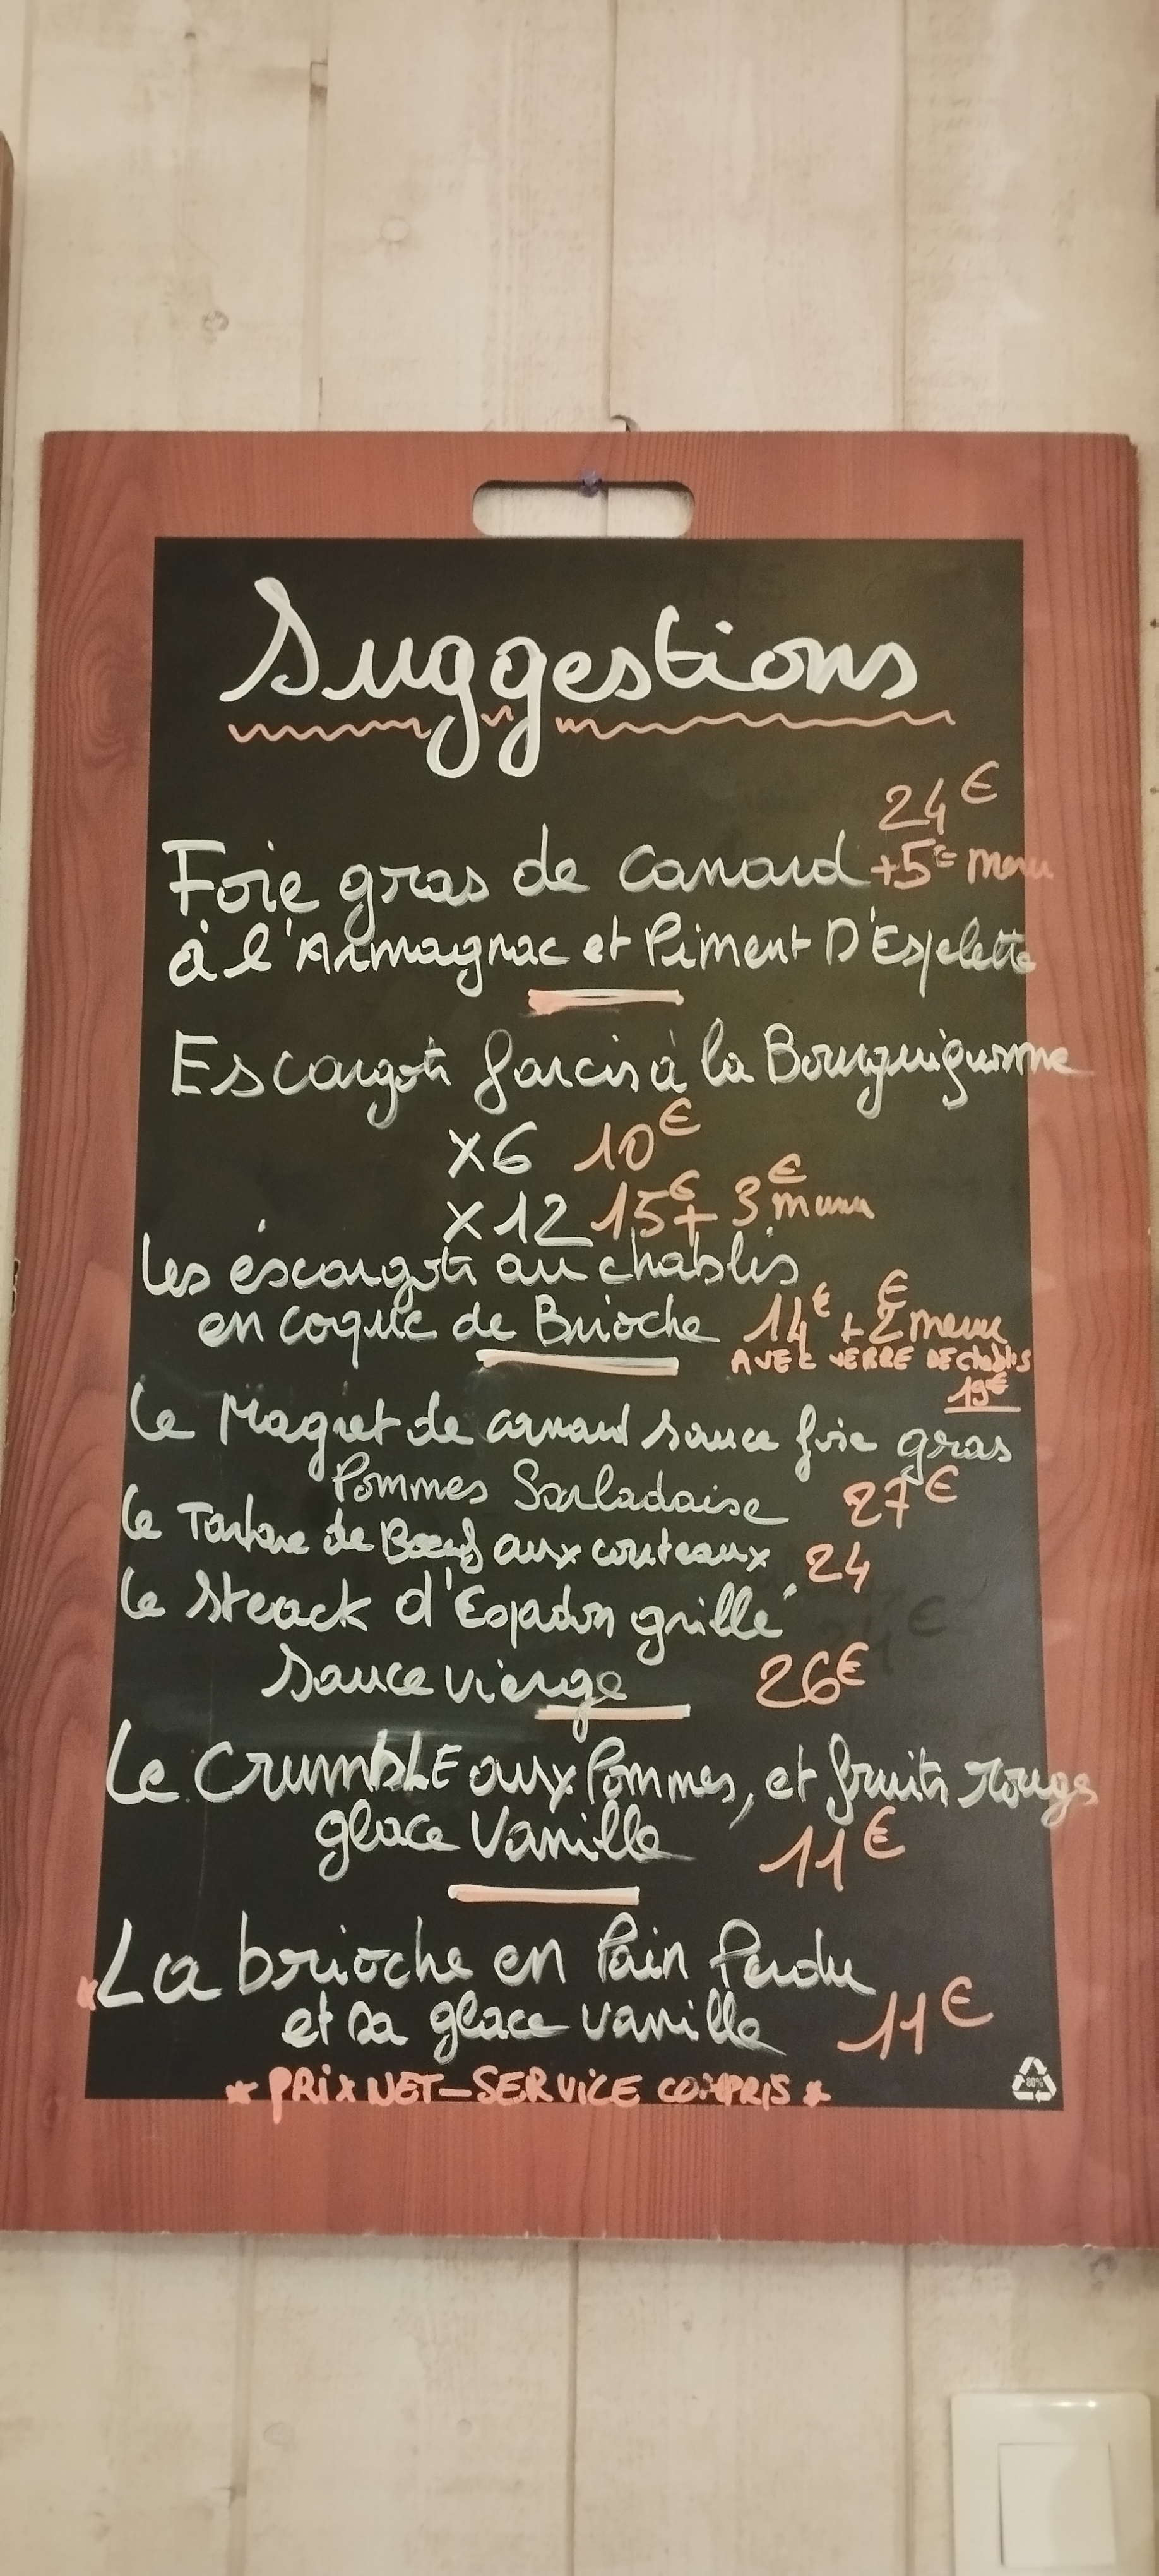 Suggestions
24€
Foie gras de canard +5€ menu
à l'Armagnac et Piment D'Espelette
Escargots farcis à la Bourguignonne
x6 10€
x12 15€ + 3€ menu
Les éscargots au chablis
en coque de Brioche 14€ + 2€ menu
AVEC VERRE DE Chablis
19€
Le Magret de canard sauce foie gras
Pommes Sarladaise 27€
Le Tartare de Boeuf aux couteaux 24
Le steack d'Espadon grillé
Sauce vierge 26€
Le CrumbLE aux Pommes, et fruits rouges
glace Vanille 11€
La brioche en Pain Perdu
et sa glace vanille 11€
* PRiX NET-SERViCE COMPRIS *
80%